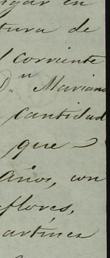 tura de
corriente
Dn Mariano
cantidad
que
años, con
flores,
artinez